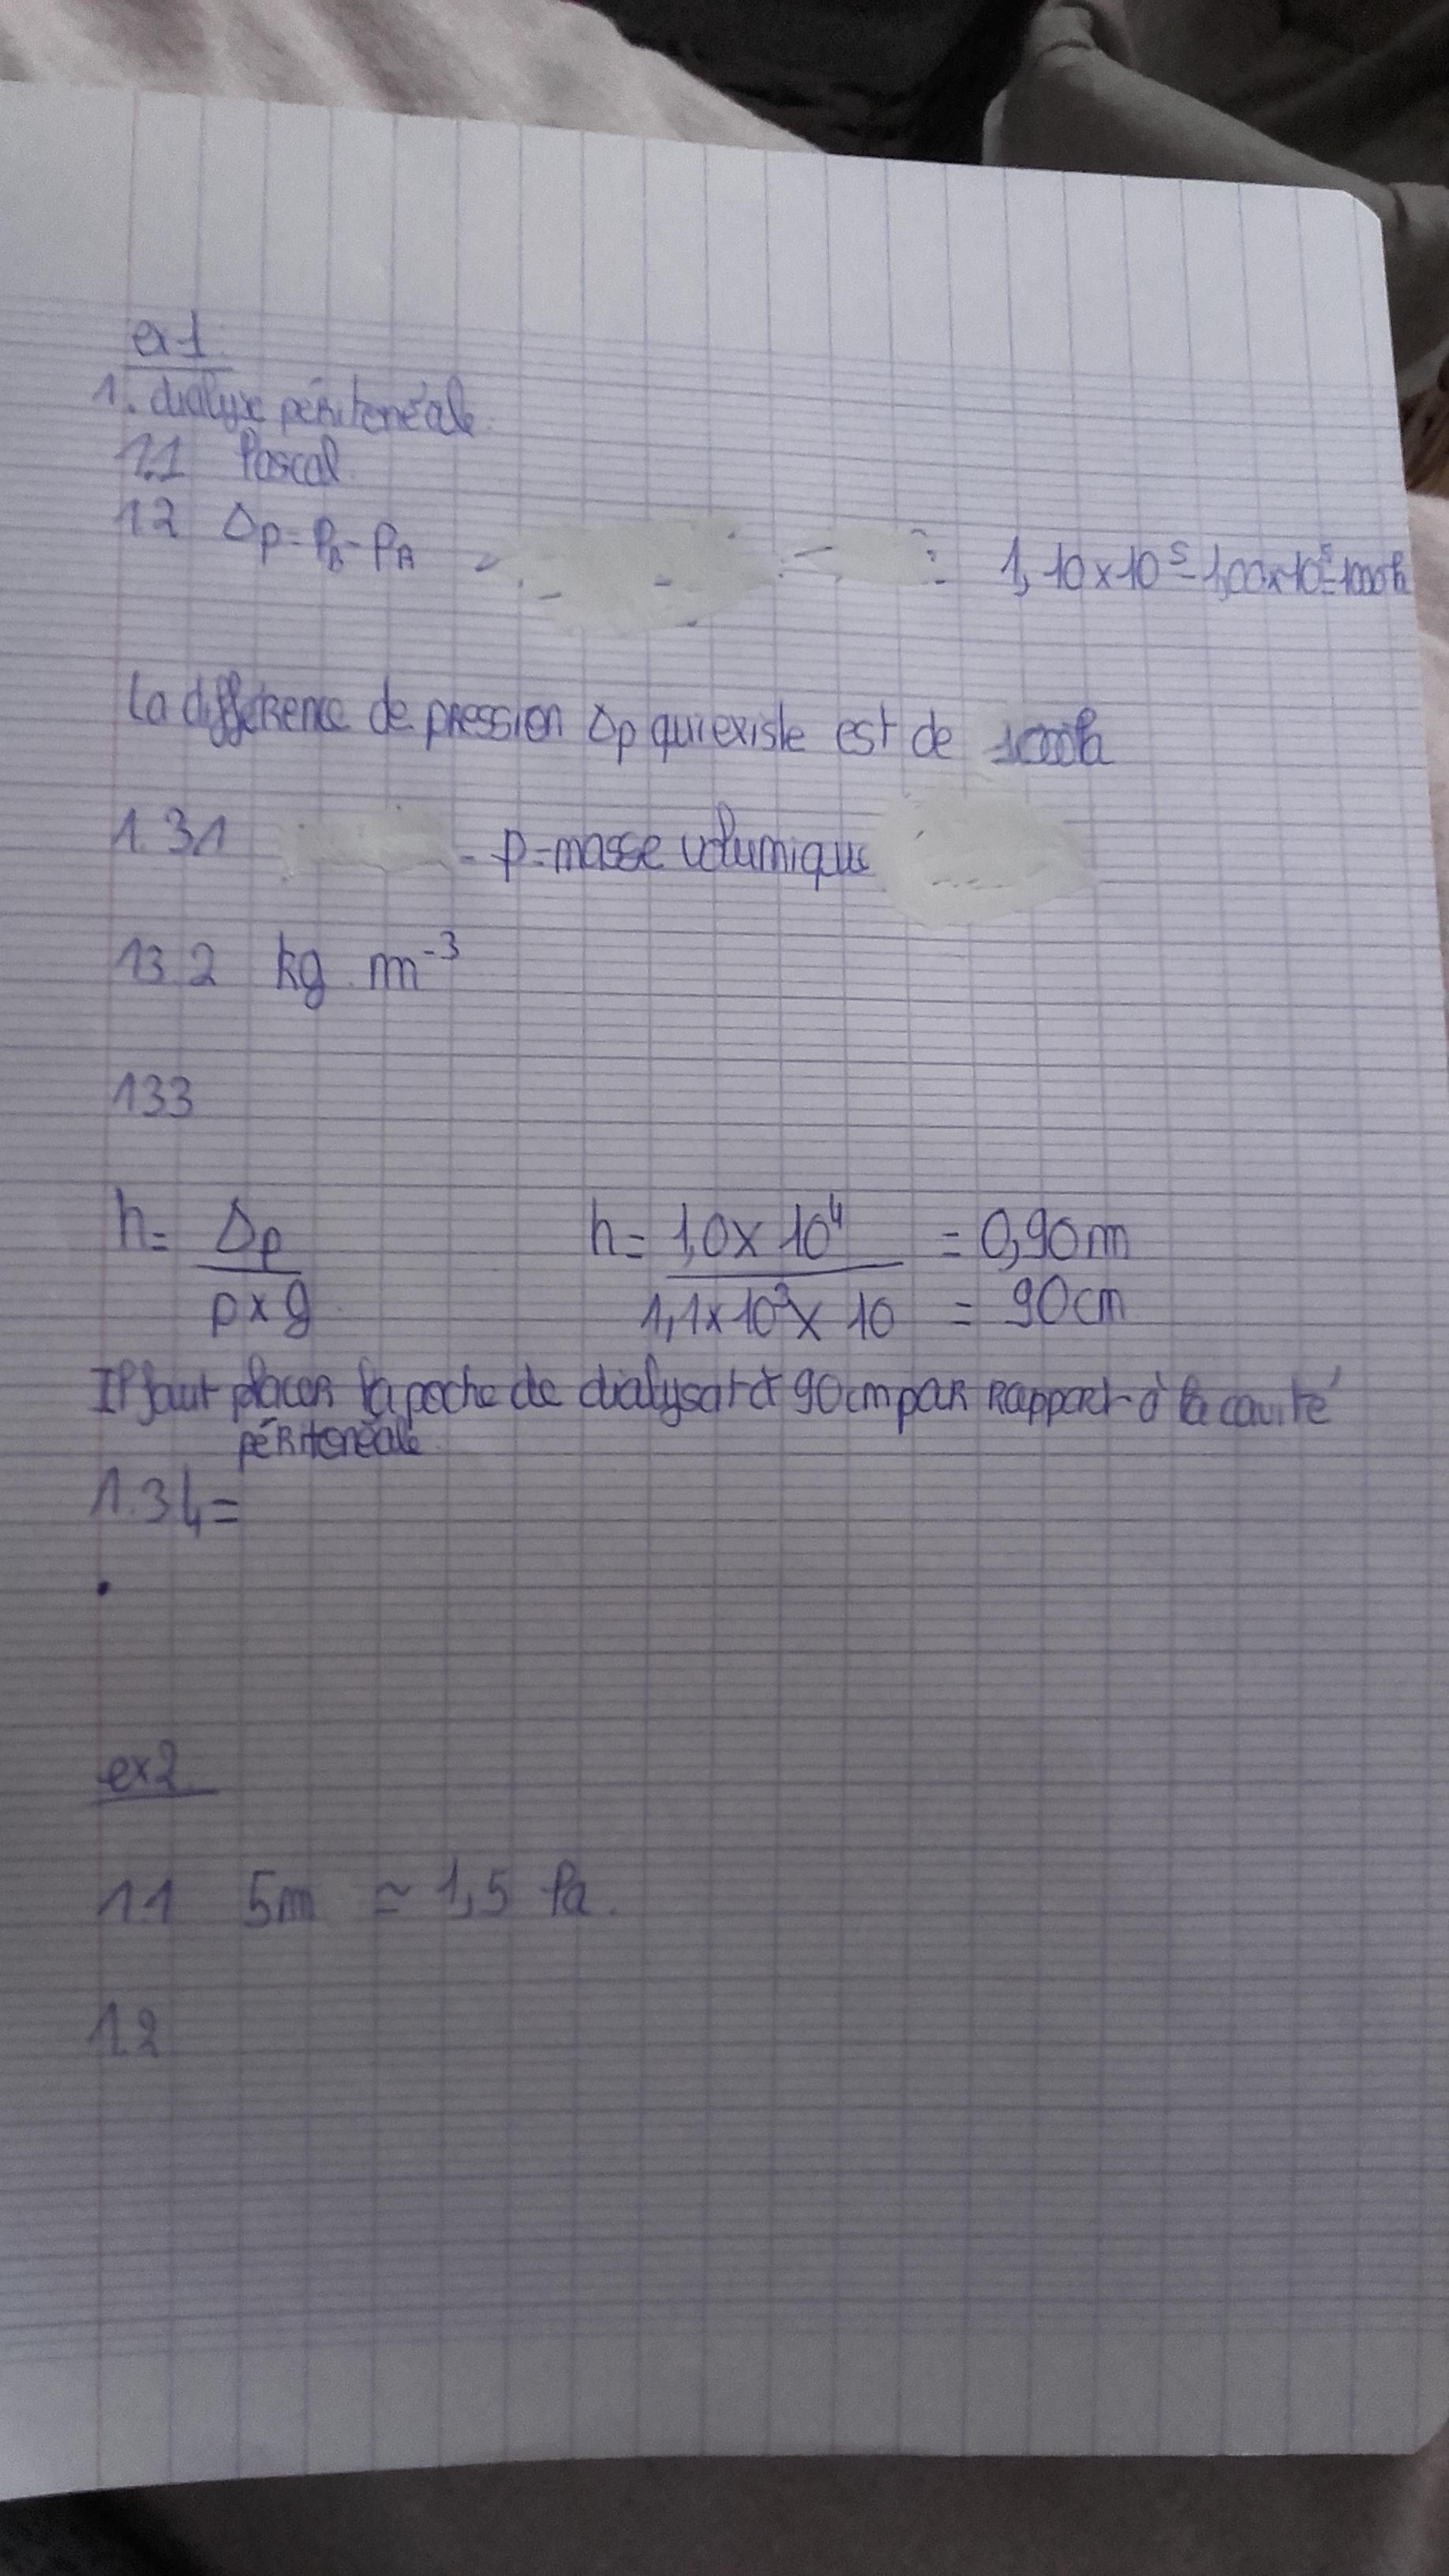 ex1
1. dialyse péritonéale
1.1 Pascal
12 Δp = PB - PA = 1,10x10⁵-1,00x10⁵=
La différence de pression Δp qui existe est de
1.31 - ρ=masse volumique
13.2 kg m⁻³
133
h= Δp / ρxg h= 1,0x10⁴ / 1,1x10³x10 = 0,90m
= 90cm
Il faut placer la poche de dialysat à 90cm par rapport à la cavité
péritonéale
1.34=
ex2
1.1 5m ≃ 1,5 Pa.
1.2